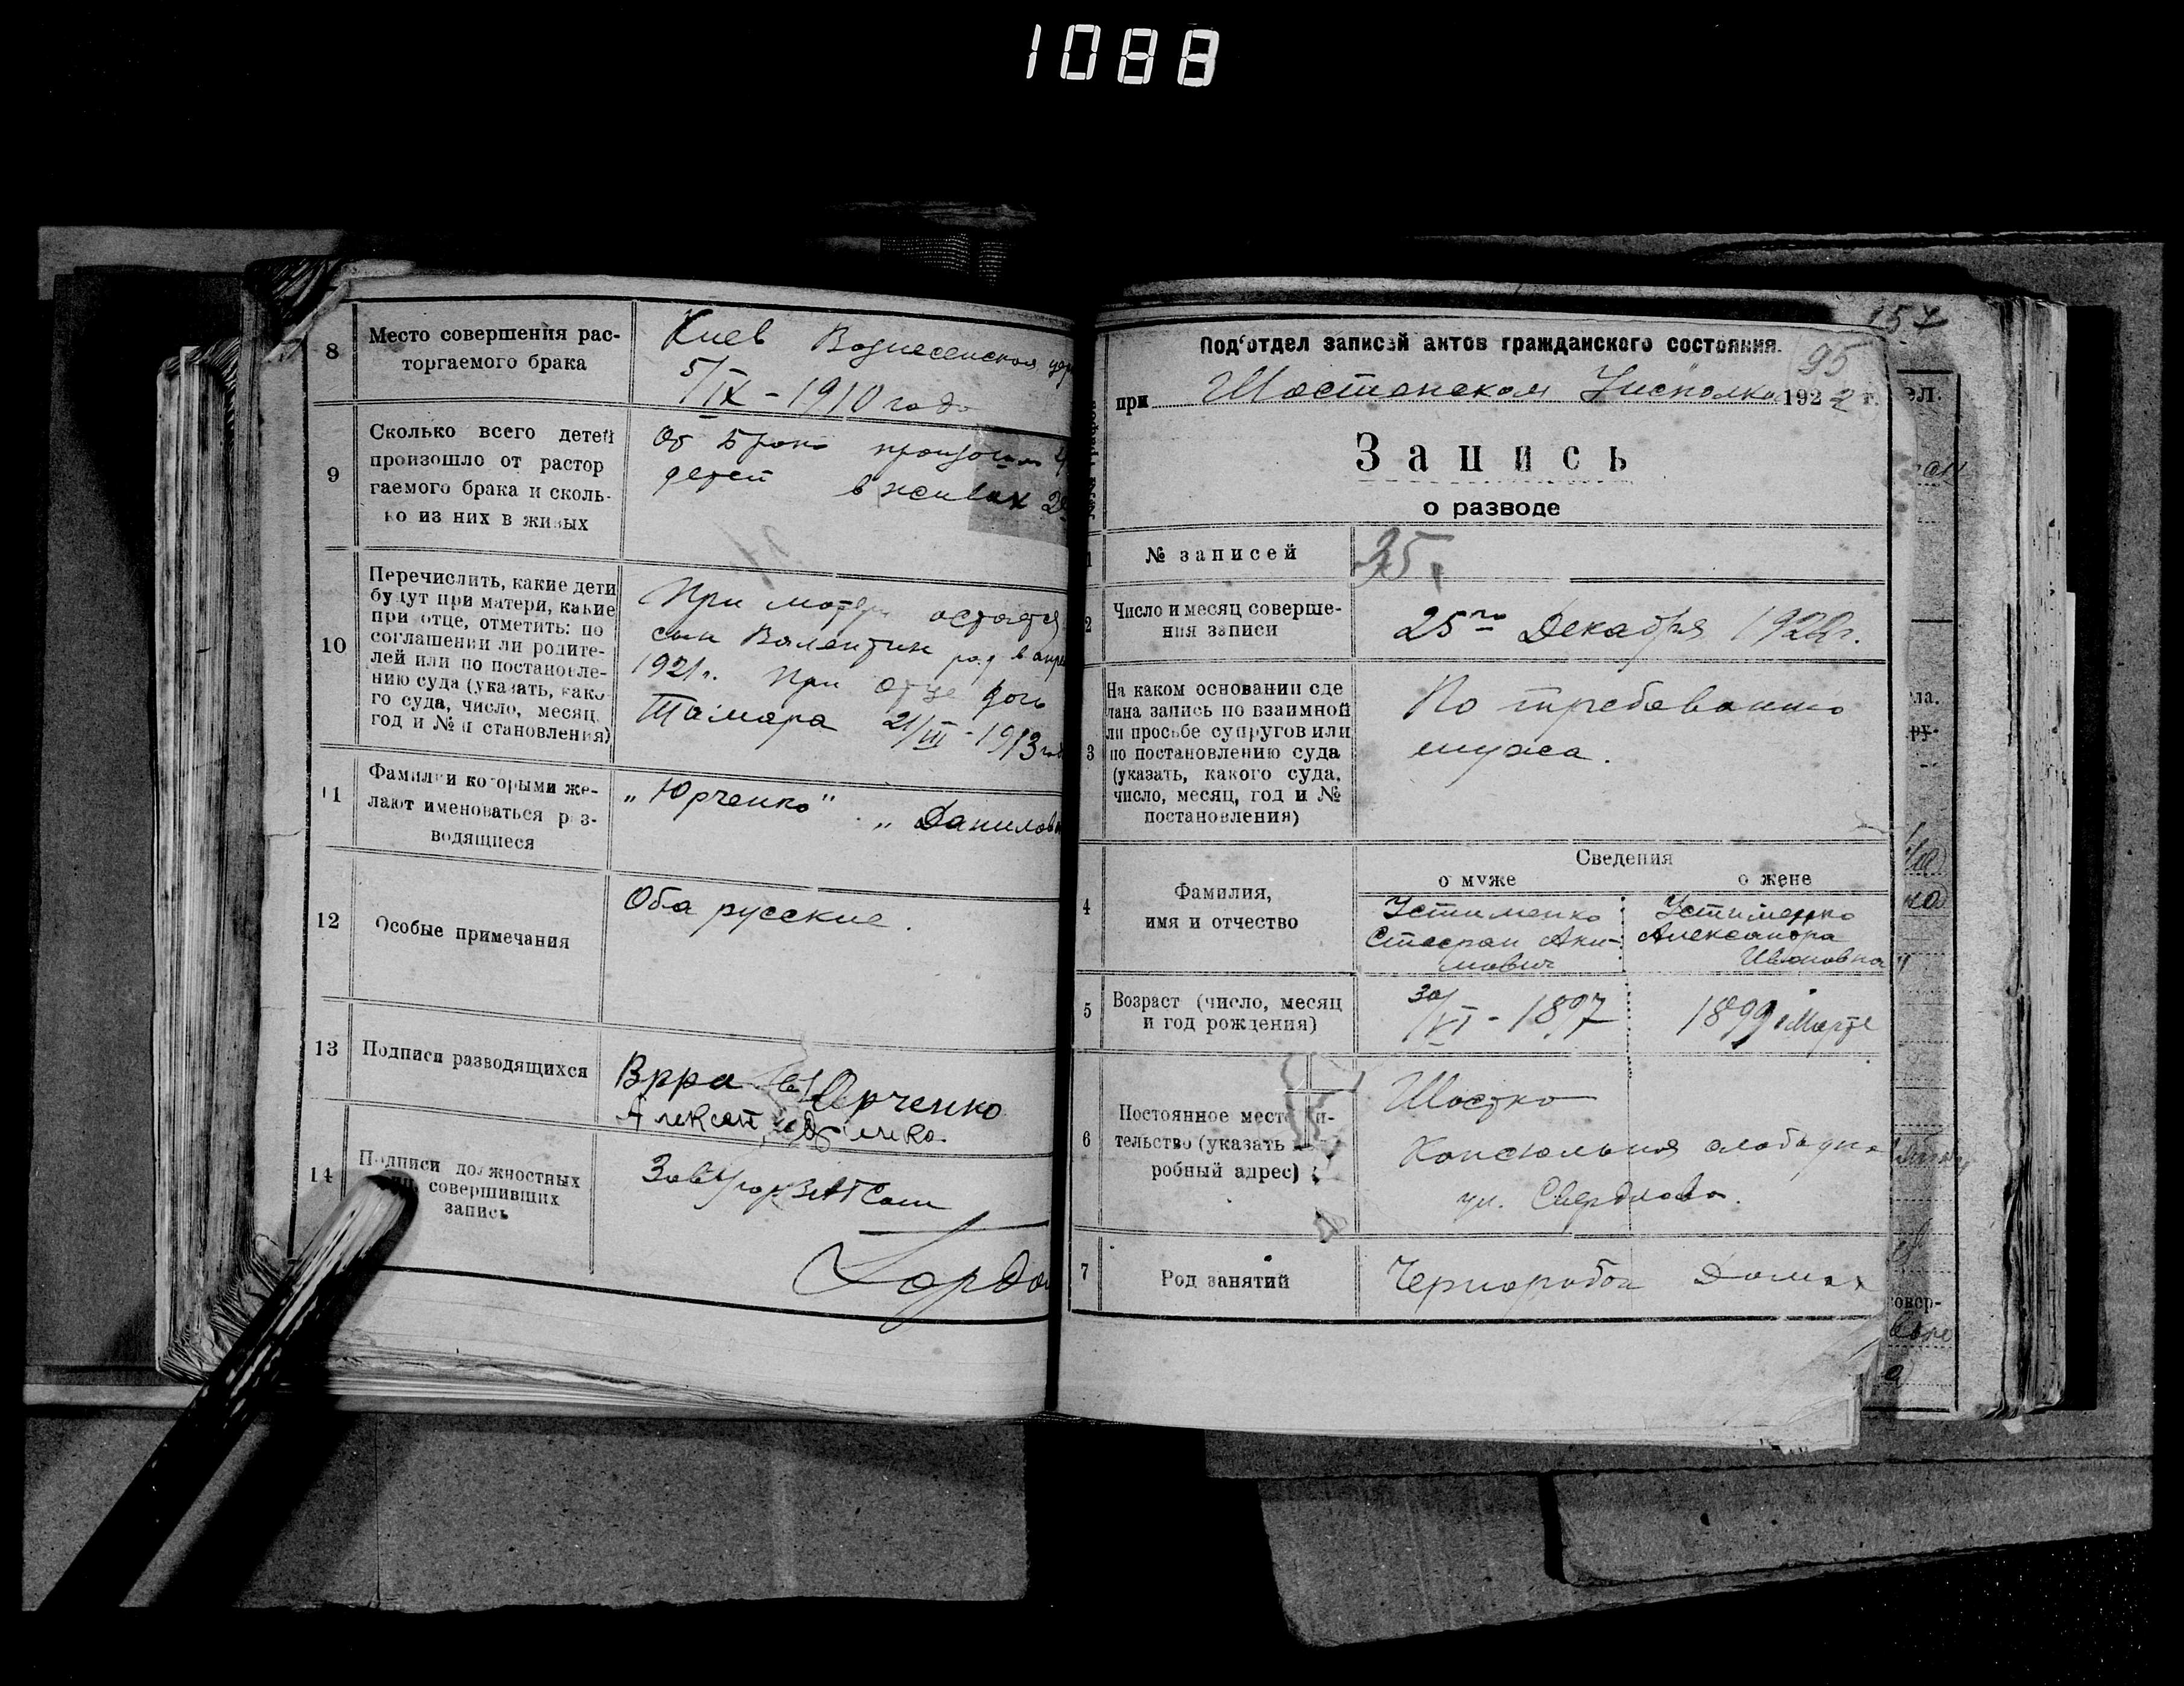 1088
8
Место совершения рас-
торгаемого брака
Киев Вознесенская
5/IX - 1910 года
9
Сколько всего детей
произошло от растор
гаемого брака и сколь-
ко из них в живых
От брака произошло
детей в живых
10
Перечислить, какие дети
будут при матери, какие
при отце, отметить: по
соглашении ли родите-
лей или по постановле-
нию суда (указать, како-
го суда, число, месяц,
год и № п становления)
При матери остается
сын Валентин род в
1921 г. При отце дочь
Тамара 21/III - 1913
11
Фамилии которыми же-
лают именоваться раз-
водящиеся
„Юрченко" „Данилов
12
Особые примечания
Оба русские.
13
Подписи разводящихся
Юрченко
14
Подписи должностных
совершивших
запись
157
95
Под'отдел записей актов гражданского состояния.
при Шостенском Уисполко 1922 г.
Запись
о разводе
1
№ записей
35.
2
Число и месяц соверше-
ния записи
25го Декабря 1922 г.
3
На каком основании сде
лана запись по взаимной
ли просьбе супругов или
по постановлению суда
(указать, какого суда,
число, месяц, год и №
постановления)
По требованию
мужа.
Сведения
о муже
о жене
4
Фамилия,
имя и отчество
Устименко
Стефан Аки-
мович
Устименко
Александра
Ивановна
5
Возраст (число, месяц
и год рождения)
30/VI - 1897
1899 Марте
6
Постоянное место
тельство (указать
робный адрес)
Шостка
Капсюльная слободка
ул. Свердлова.
7
Род занятий
Чернорабоч Домах